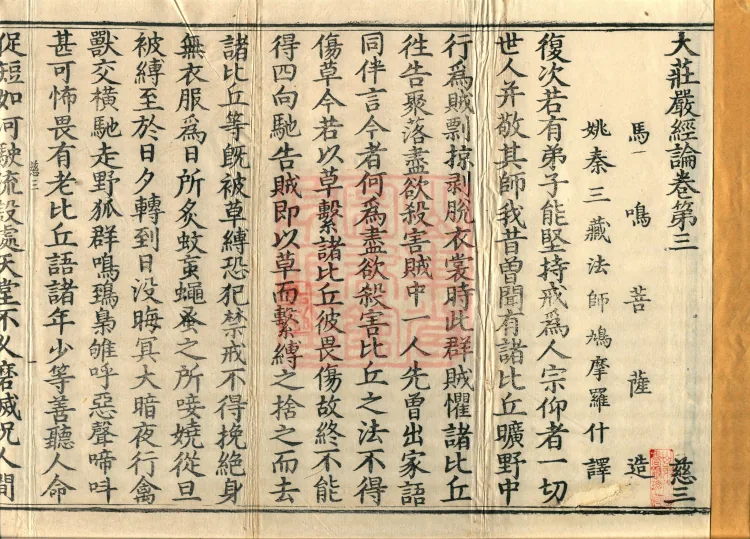 大莊嚴經論卷第三 慈三
馬鳴菩薩造
姚秦三藏法師鳩摩羅什譯
復次若有弟子能堅持戒爲人宗仰者一切
世人并敬其師我昔曾聞有諸比丘曠野中
行爲賊剽掠剥脫衣裳時此群賊懼諸比丘
徃告聚落盡欲殺害賊中一人先曾出家語
同伴言今者何爲盡欲殺害比丘之法不得
傷草今若以草繫諸比丘彼畏傷故終不能
得四向馳告賊即以草而繫縛之捨之而去
諸比丘等旣被草縛恐犯禁戒不得挽絕身
無衣服爲日所炙蚊蝱蠅蚤之所唼嬈從旦
被縛至於日夕轉到日没晦冥大暗夜行禽
獸交橫馳走野狐群鳴鵄梟雊呼惡聲啼呌
甚可怖畏有老比丘語諸年少等善聽人命
慈三
促短如河駛流設處天堂不久磨滅況人間